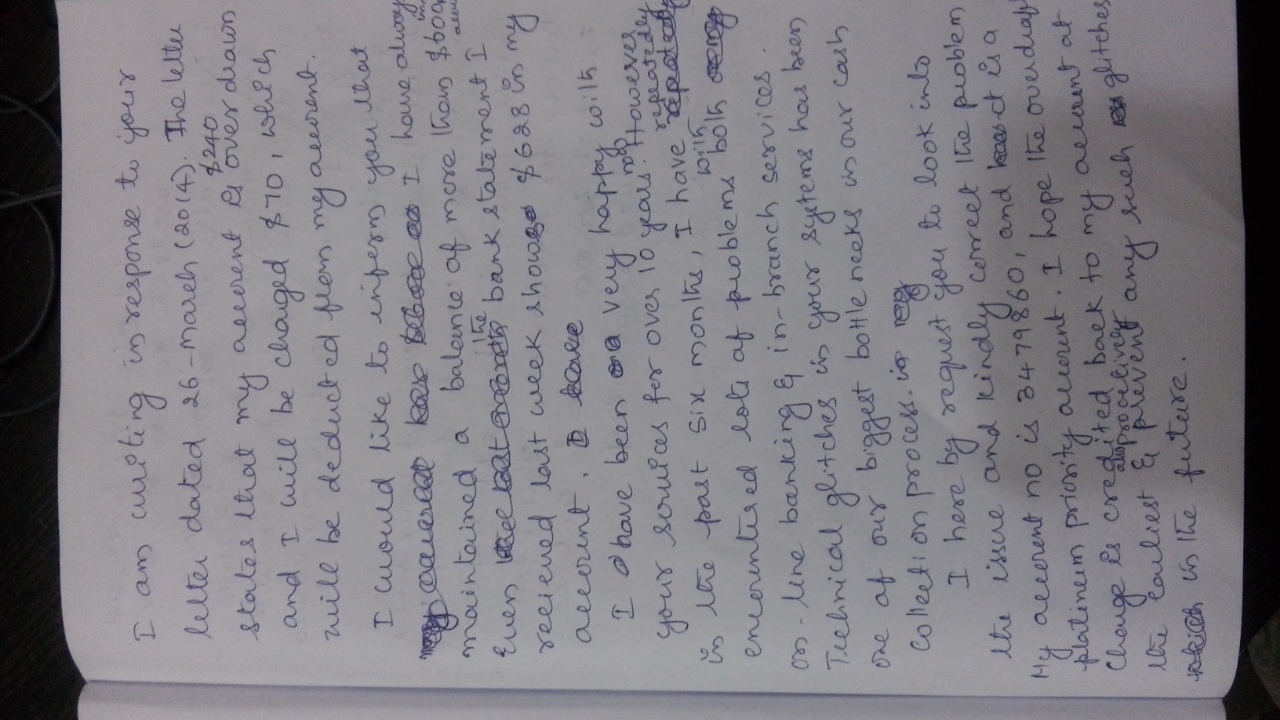 I am writing in response to your
letter dated 26-march (2014). The letter
states that my account is $240 overdrawn
and I will be charged $70, which
will be deducted from my account.
I would like to inform you that
I have always
maintained a balance of more than $600 in
Even the bank statement I
received last week shows $628 in my
account.
I have been very happy with
your services for over 10 years. However
in the past six months, I have repeatedly
encountered lots of problems with both
on-line banking & in-branch services.
Technical glitches in your systems has been
one of our biggest bottle necks in our cash
collection process.
I here by request you to look into
the issue and kindly correct the problem
My account no is 3479860, and it is a
platinum priority account. I hope the overdraft
charge is credited back to my account at
the earliest & prevent any such glitches
in the future.